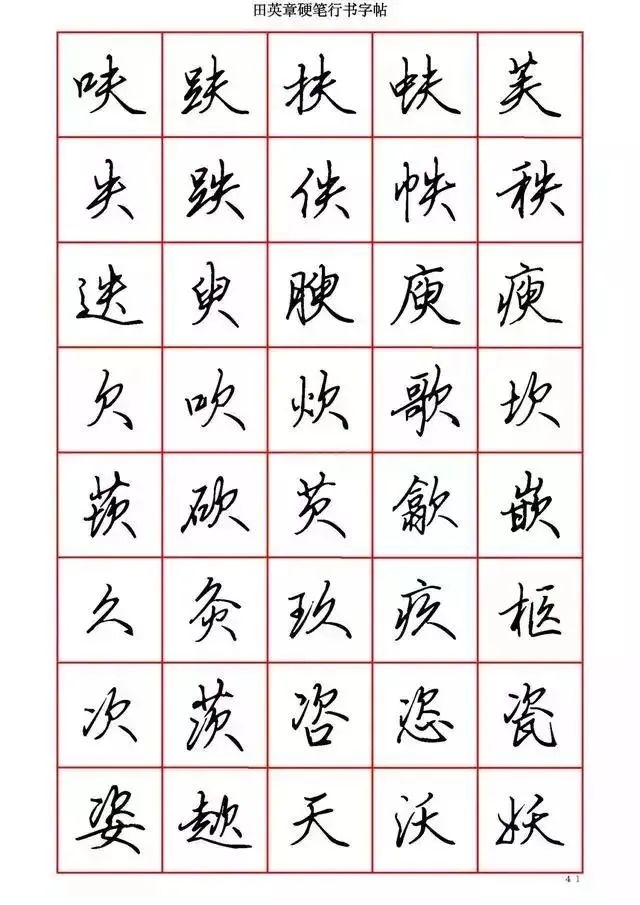 田英章硬笔行书字帖
呋 趺 扶 蚨 芙
失 跌 佚 帙 秩
迭 臾 腴 庾 瘐
欠 吹 炊 歌 坎
莰 砍 芡 歙 嵌
久 灸 玖 疚 柩
次 茨 咨 恣 瓷
姿 趑 夭 沃 妖
41